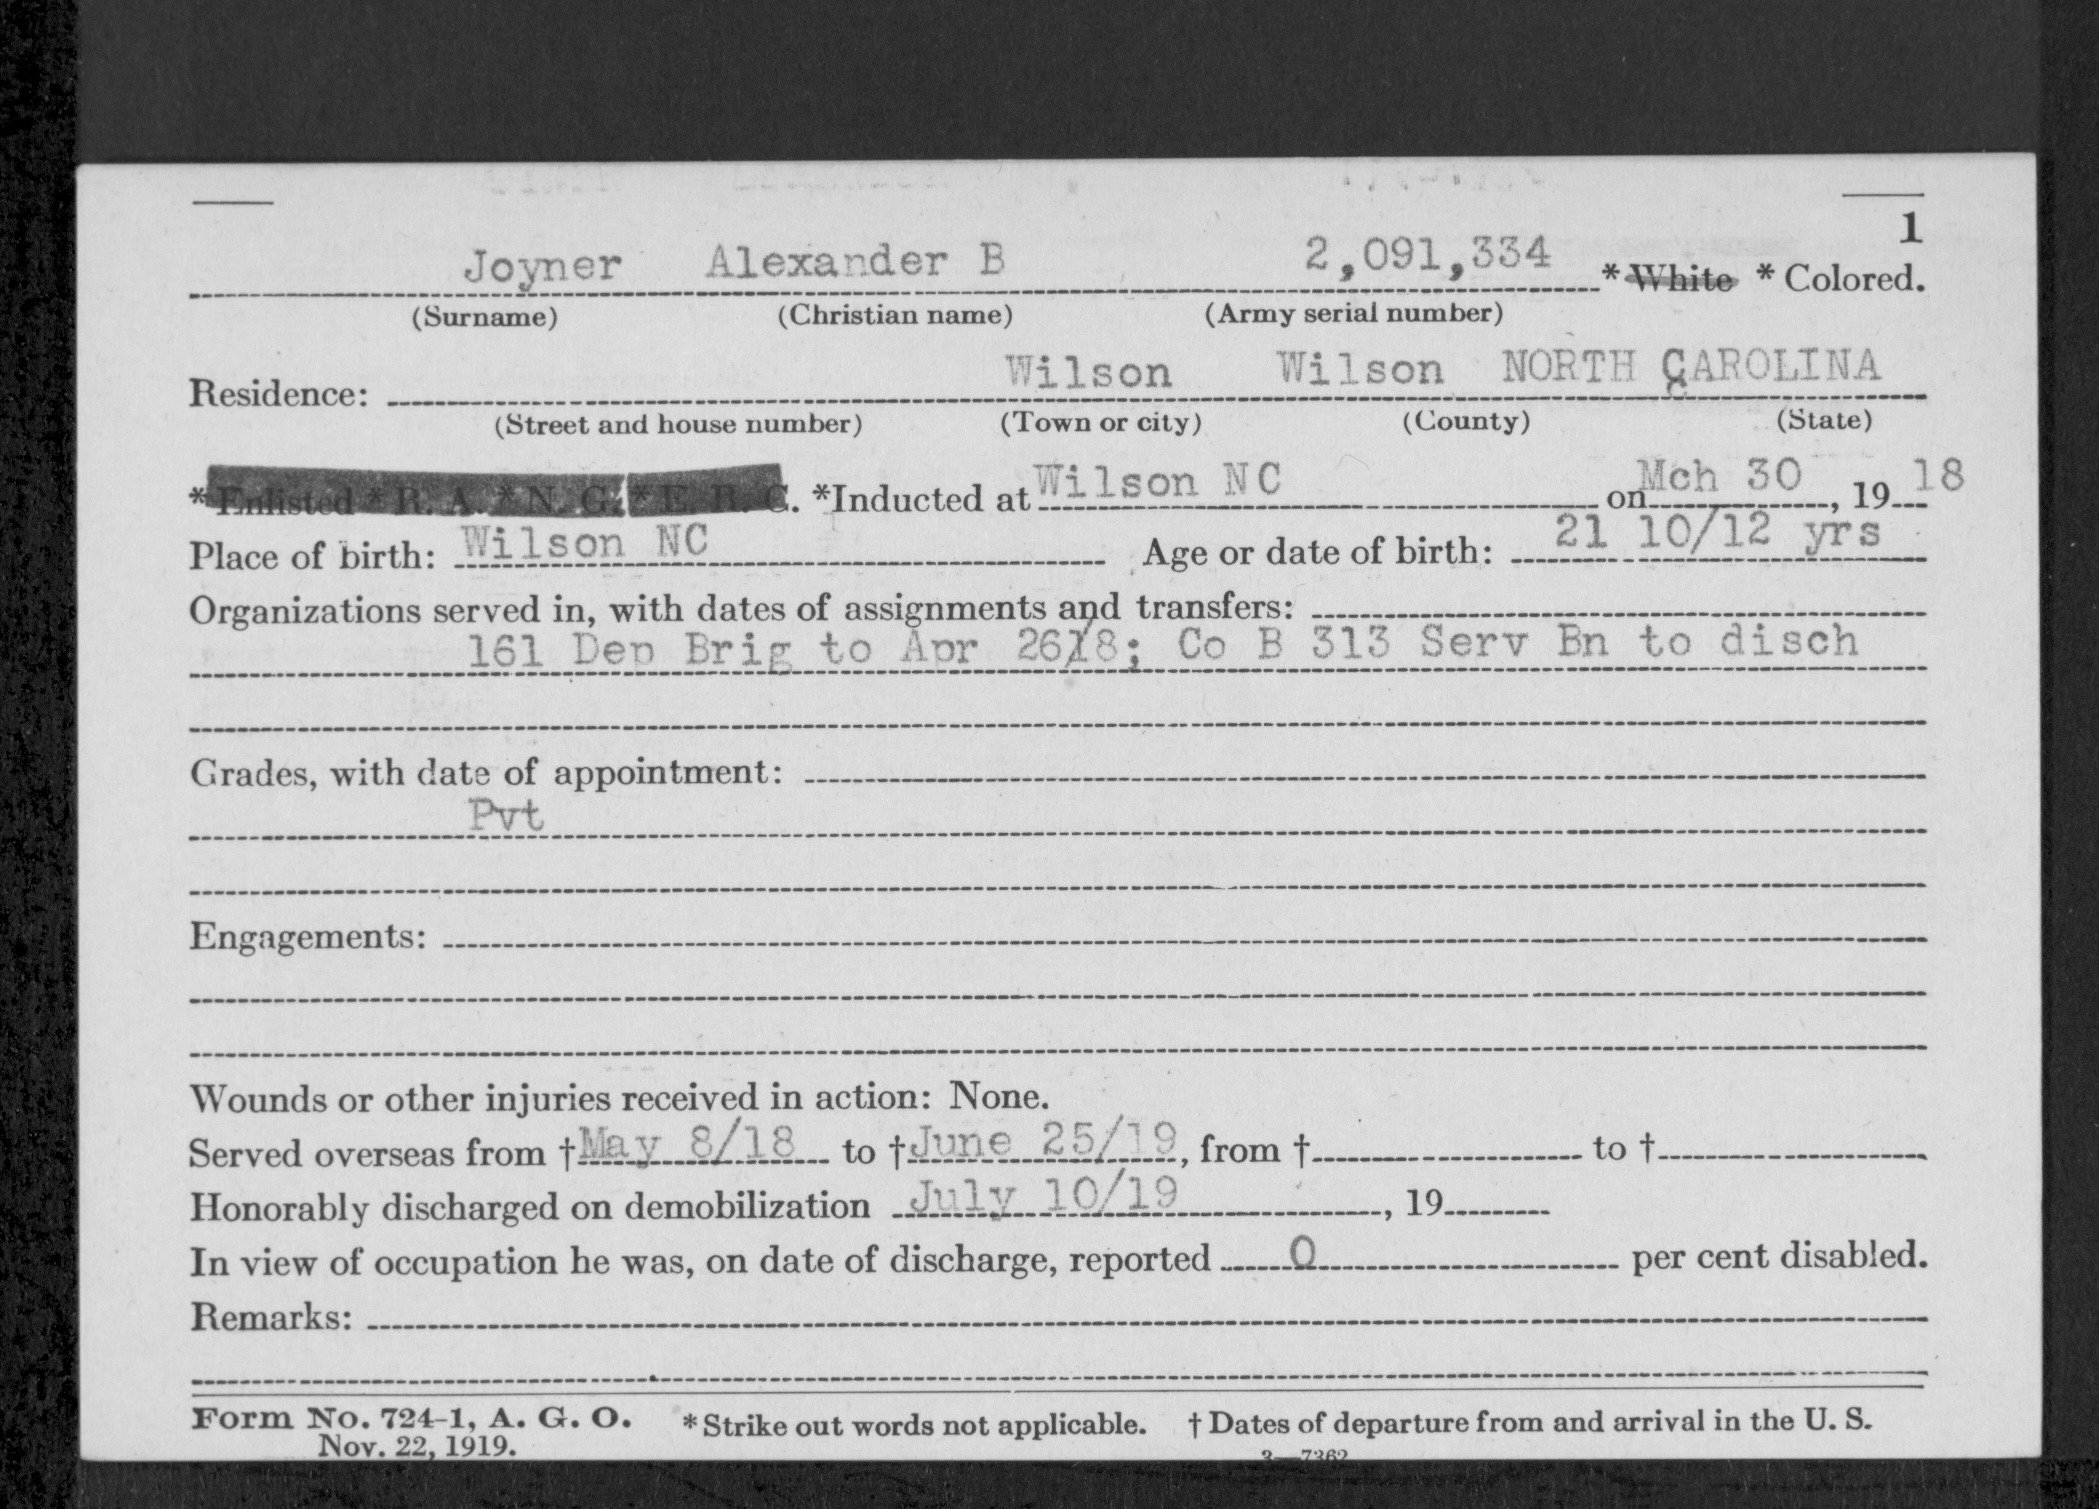 1
Joyner Alexander B 2,091,334 * White * Colored.
(Surname) (Christian name) (Army serial number)
Residence: Wilson Wilson NORTH CAROLINA
(Street and house number) (Town or city) (County) (State)
* Enlisted * R. A. * N. G. * E. R. C. *Inducted at Wilson NC on Mch 30, 19 18
Place of birth: Wilson NC Age or date of birth: 21 10/12 yrs
Organizations served in, with dates of assignments and transfers:
161 Dep Brig to Apr 26/18; Co B 313 Serv Bn to disch
Grades, with date of appointment:
Pvt
Engagements:
Wounds or other injuries received in action: None.
Served overseas from † May 8/18 to † June 25/19, from † to †
Honorably discharged on demobilization July 10/19, 19
In view of occupation he was, on date of discharge, reported 0 per cent disabled.
Remarks:
Form No. 724-1, A. G. O. * Strike out words not applicable. † Dates of departure from and arrival in the U. S.
Nov. 22, 1919. 3—7362